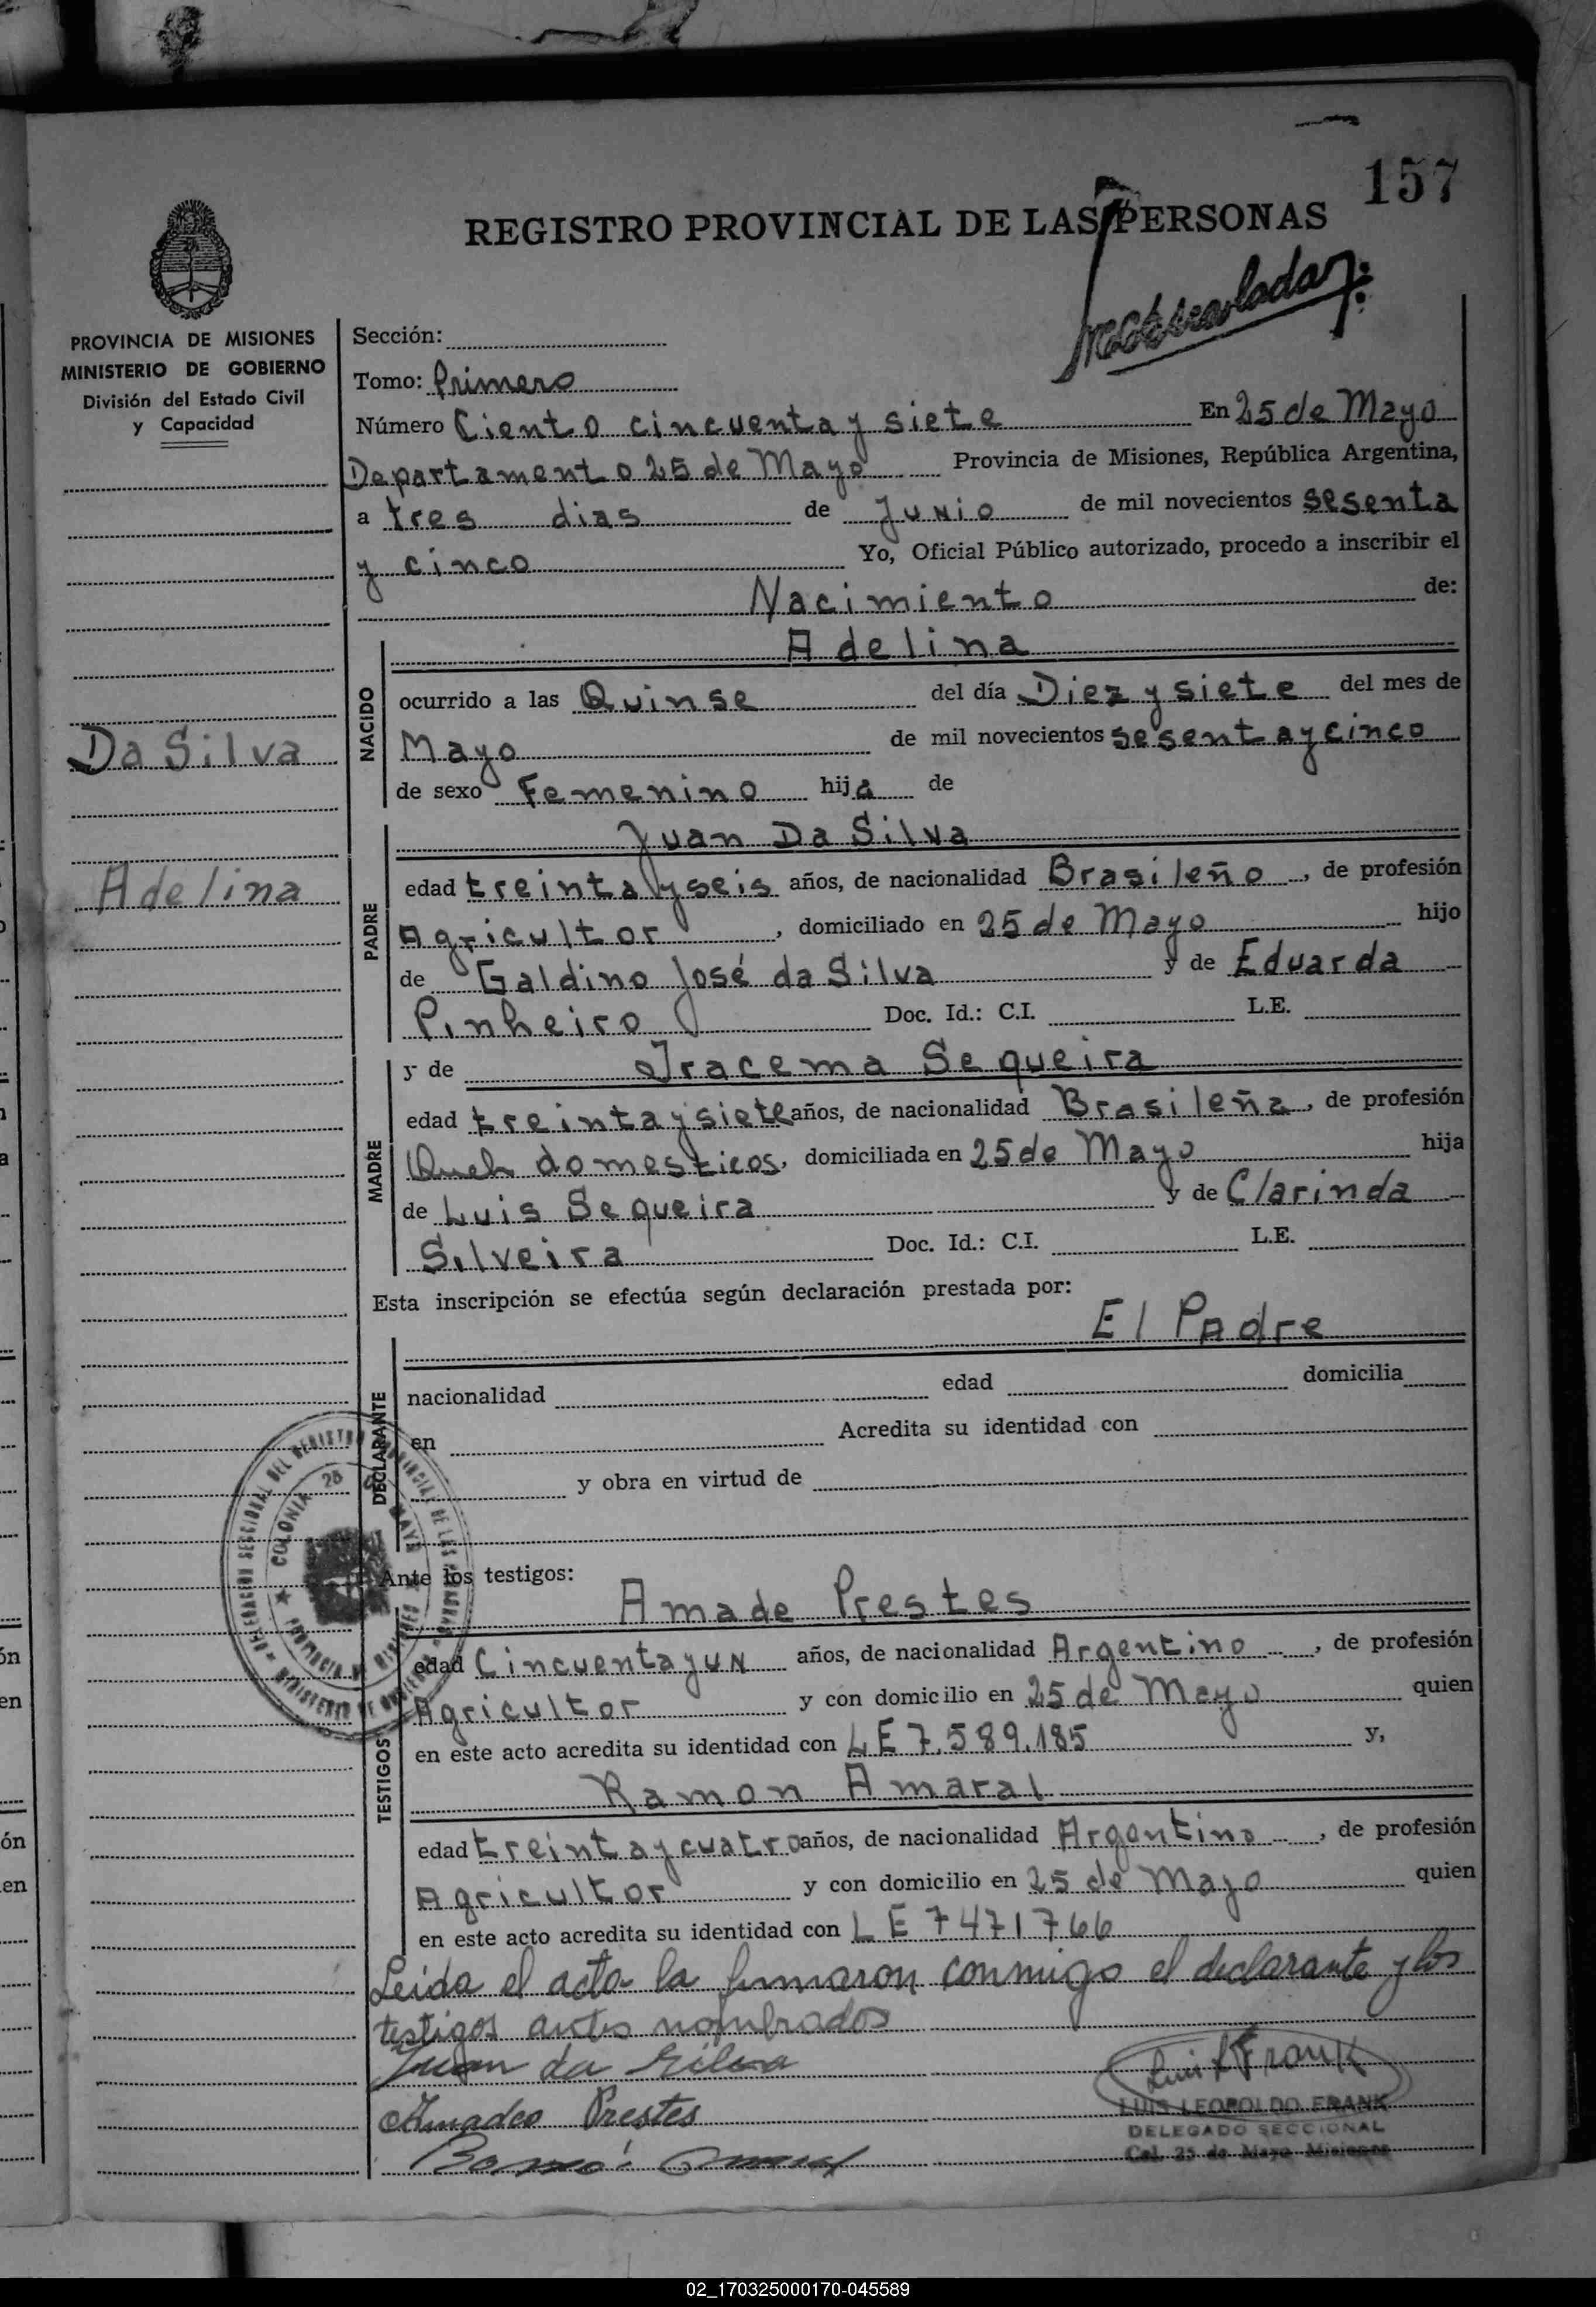 157
REGISTRO PROVINCIAL DE LAS PERSONAS
PROVINCIA DE MISIONES
MINISTERIO DE GOBIERNO
División del Estado Civil
y Capacidad
Da Silva
Adelina
Sección:
Tomo: Primero
Número Ciento cincuenta y siete En 25 de Mayo
Departamento 25 de Mayo Provincia de Misiones, República Argentina,
a tres dias de Junio de mil novecientos sesenta
y cinco Yo, Oficial Público autorizado, procedo a inscribir el
Nacimiento de:
Adelina
NACIDO
ocurrido a las Quinse del día Diez y siete del mes de
Mayo de mil novecientos sesenta y cinco
de sexo Femenino hija de
Juan Da Silva
PADRE
edad treinta y seis años, de nacionalidad Brasileño, de profesión
Agricultor, domiciliado en 25 de Mayo hijo
de Galdino José da Silva y de Eduarda
Pinheiro Doc. Id.: C.I. L.E.
y de Iracema Sequeira
MADRE
edad treinta y siete años, de nacionalidad Brasileña, de profesión
Queh domesticos, domiciliada en 25 de Mayo hija
de Luis Sequeira y de Clarinda
Silveira Doc. Id.: C.I. L.E.
Esta inscripción se efectúa según declaración prestada por:
El Padre
DECLARANTE
nacionalidad edad domicilia
en Acredita su identidad con
y obra en virtud de
COLONIA 25 DE MAYO
Ante los testigos:
Amade Prestes
TESTIGOS
edad Cincuenta y un años, de nacionalidad Argentino, de profesión
Agricultor y con domicilio en 25 de Mayo quien
en este acto acredita su identidad con LE 7.589.185 y,
Ramon Amaral
edad treinta y cuatro años, de nacionalidad Argentino, de profesión
Agricultor y con domicilio en 25 de Mayo quien
en este acto acredita su identidad con LE 7471766
Leida el acta la firmaron conmigo el declarante y los
testigos antes nombrados
Juan da Silva
Amadeo Prestes
Luis L Frank
LUIS LEOPOLDO FRANK
DELEGADO SECCIONAL
Col. 25 de Mayo Misiones
02_170325000170-045589